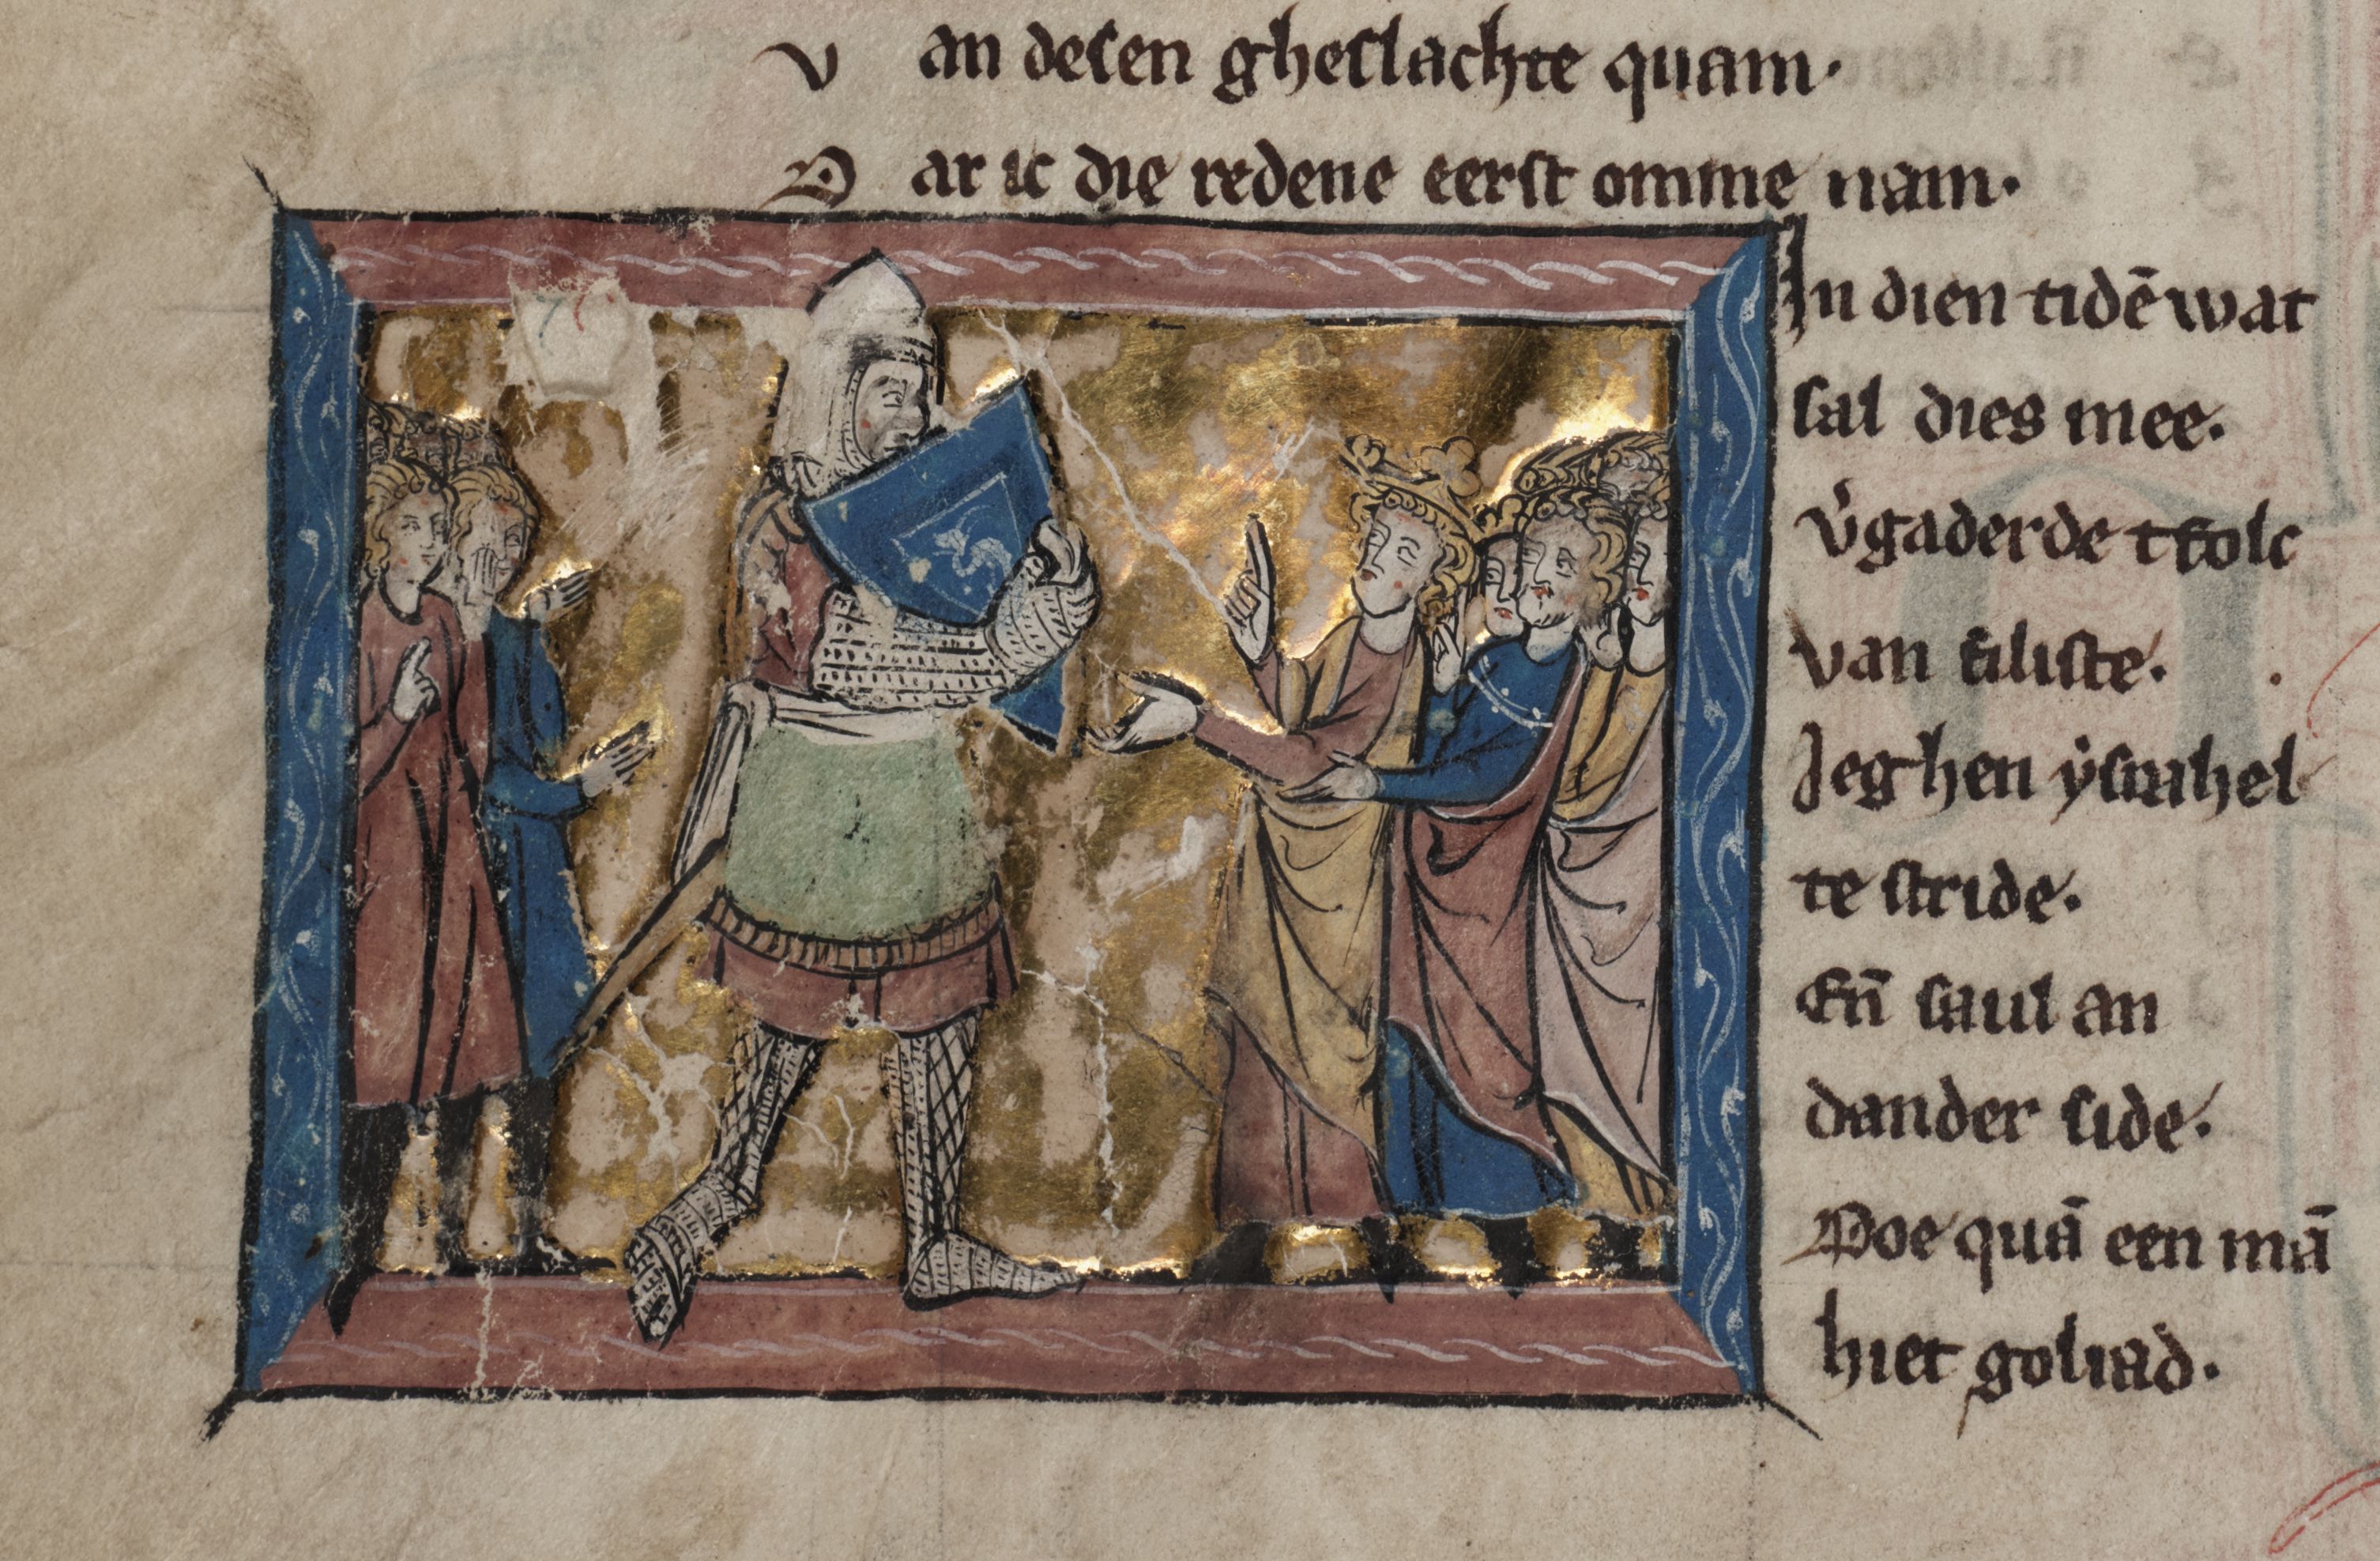 V an desen gheslachte quam·
D ar ic die redene eerst omme nam·
In dien tidē wat
sal dies mee·
v̓gaderde tfolc
van filiste·
Jeghen ẏsrahel
te stride·
En̄ saul an
dander side·
Doe quā een mā
hiet goliad·